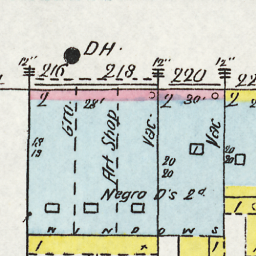 DH.
12" 12" 12"
216 218 220 22
2 28' 2 30' 2
Gro.
Art Shop
Vac.
Vac
18
19
20
20
20
20
Negro D's 2d
W I N D O W S
1 x 1
1